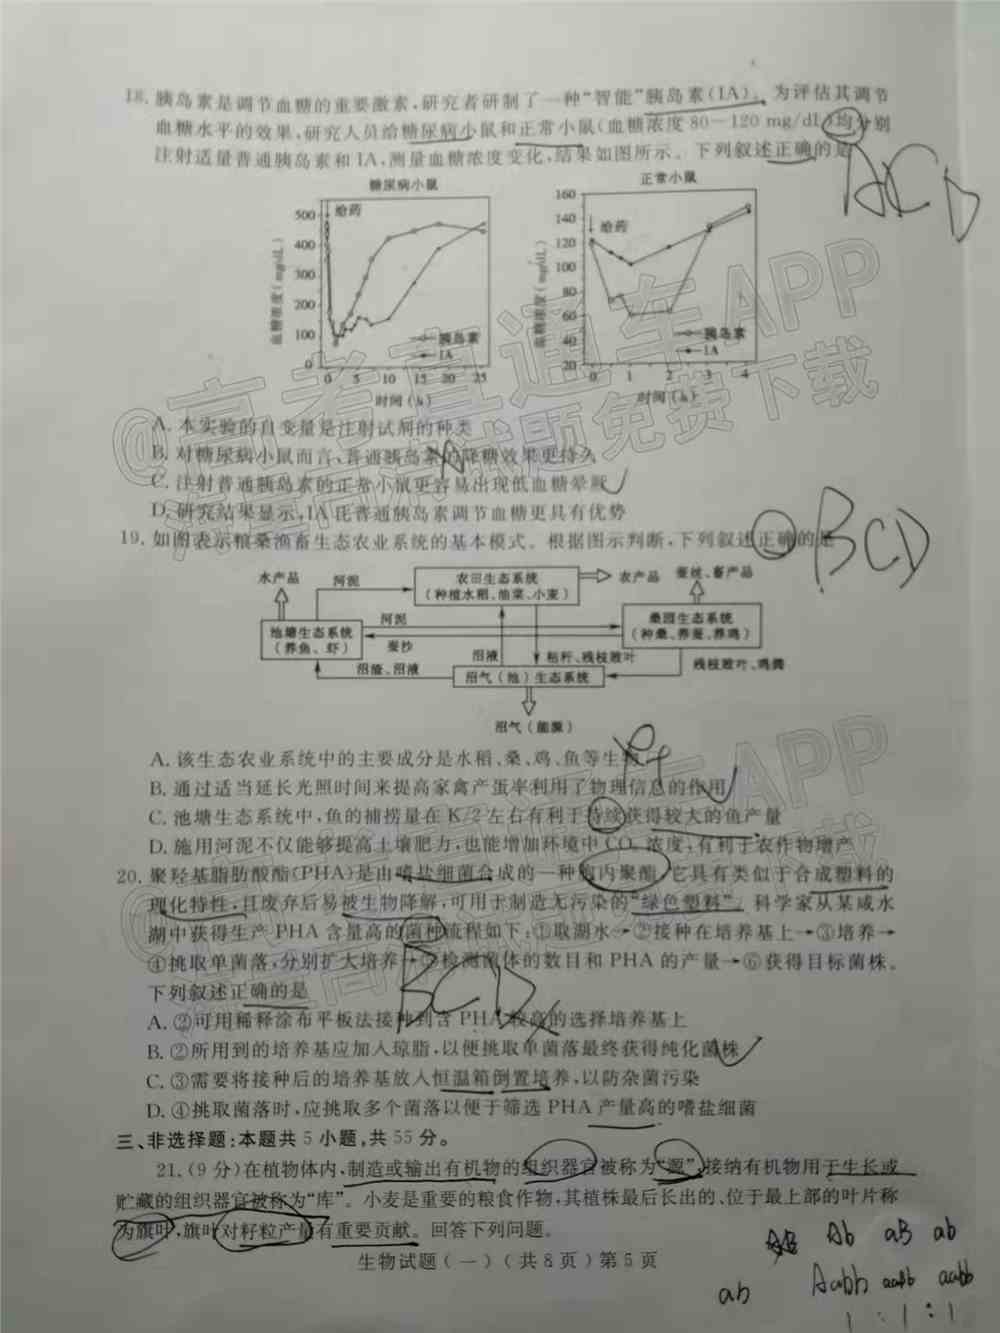 18. 胰岛素是调节血糖的重要激素,研究者研制了一种“智能”胰岛素(IA)。为评估其调节
血糖水平的效果,研究人员给糖尿病小鼠和正常小鼠(血糖浓度 80-120 mg/dL)均分别
注射适量普通胰岛素和 IA,测量血糖浓度变化,结果如图所示。下列叙述正确的是
ACD
糖尿病小鼠
正常小鼠
给药
给药
血糖浓度(mg/dL)
500
400
300
200
100
0
0 5 10 15 20 25
时间(h)
胰岛素
IA
血糖浓度(mg/dL)
160
140
120
100
80
60
40
20
0 1 2 3 4
时间(h)
胰岛素
IA
A. 本实验的自变量是注射试剂的种类
B. 对糖尿病小鼠而言,普通胰岛素的降糖效果更持久
C. 注射普通胰岛素的正常小鼠更容易出现低血糖晕厥
D. 研究结果显示,IA 比普通胰岛素调节血糖更具有优势
19. 如图表示粮桑渔畜生态农业系统的基本模式。根据图示判断,下列叙述正确的是
BCD
水产品
河泥
农田生态系统
(种植水稻、油菜、小麦)
农产品
蚕丝、畜产品
池塘生态系统
(养鱼、虾)
河泥
蚕沙
桑园生态系统
(种桑、养蚕、养鸡)
沼渣、沼液
沼液
秸秆、残枝败叶
残枝败叶、鸡粪
沼气(池)生态系统
沼气(能源)
A. 该生态农业系统中的主要成分是水稻、桑、鸡、鱼等生物
B. 通过适当延长光照时间来提高家禽产蛋率利用了物理信息的作用
C. 池塘生态系统中,鱼的捕捞量在 K/2 左右有利于持续获得较大的鱼产量
D. 施用河泥不仅能够提高土壤肥力,也能增加环境中 CO₂ 浓度,有利于农作物增产
20. 聚羟基脂肪酸酯(PHA)是由嗜盐细菌合成的一种胞内聚酯,它具有类似于合成塑料的
理化特性,且废弃后易被生物降解,可用于制造无污染的“绿色塑料”。科学家从某咸水
湖中获得生产 PHA 含量高的菌种流程如下:①取湖水→②接种在培养基上→③培养→
④挑取单菌落,分别扩大培养→⑤检测菌体的数目和 PHA 的产量→⑥获得目标菌株。
下列叙述正确的是
BCD
A. ②可用稀释涂布平板法接种到含 PHA 较高的选择培养基上
B. ②所用到的培养基应加入琼脂,以便挑取单菌落最终获得纯化菌株
C. ③需要将接种后的培养基放入恒温箱倒置培养,以防杂菌污染
D. ④挑取菌落时,应挑取多个菌落以便于筛选 PHA 产量高的嗜盐细菌
三、非选择题:本题共 5 小题,共 55 分。
21. (9 分)在植物体内,制造或输出有机物的组织器官被称为“源”,接纳有机物用于生长或
贮藏的组织器官被称为“库”。小麦是重要的粮食作物,其植株最后长出的、位于最上部的叶片称
为旗叶,旗叶对籽粒产量有重要贡献。回答下列问题。
生物试题(一)(共 8 页)第 5 页
Ab aB ab
ab Aabb aaBb aabb
1 : 1 : 1